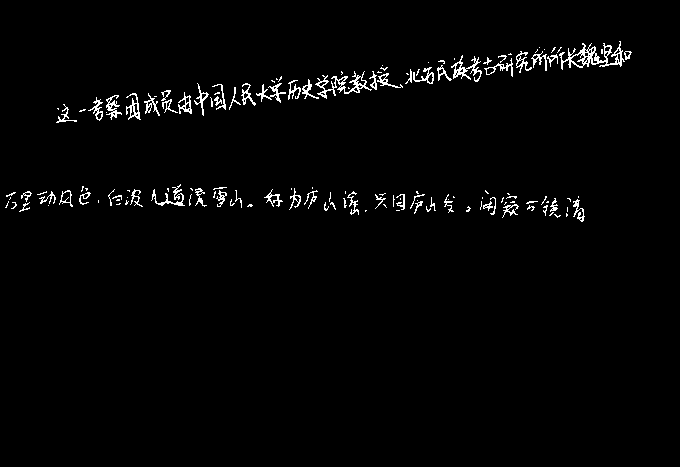 这一考察团成员由中国人民大学历史学院教授、北方民族考古研究所所长魏坚和
万里动风色,白波九道流雪山。好为庐山谣,兴因庐山发。闲窥石镜清